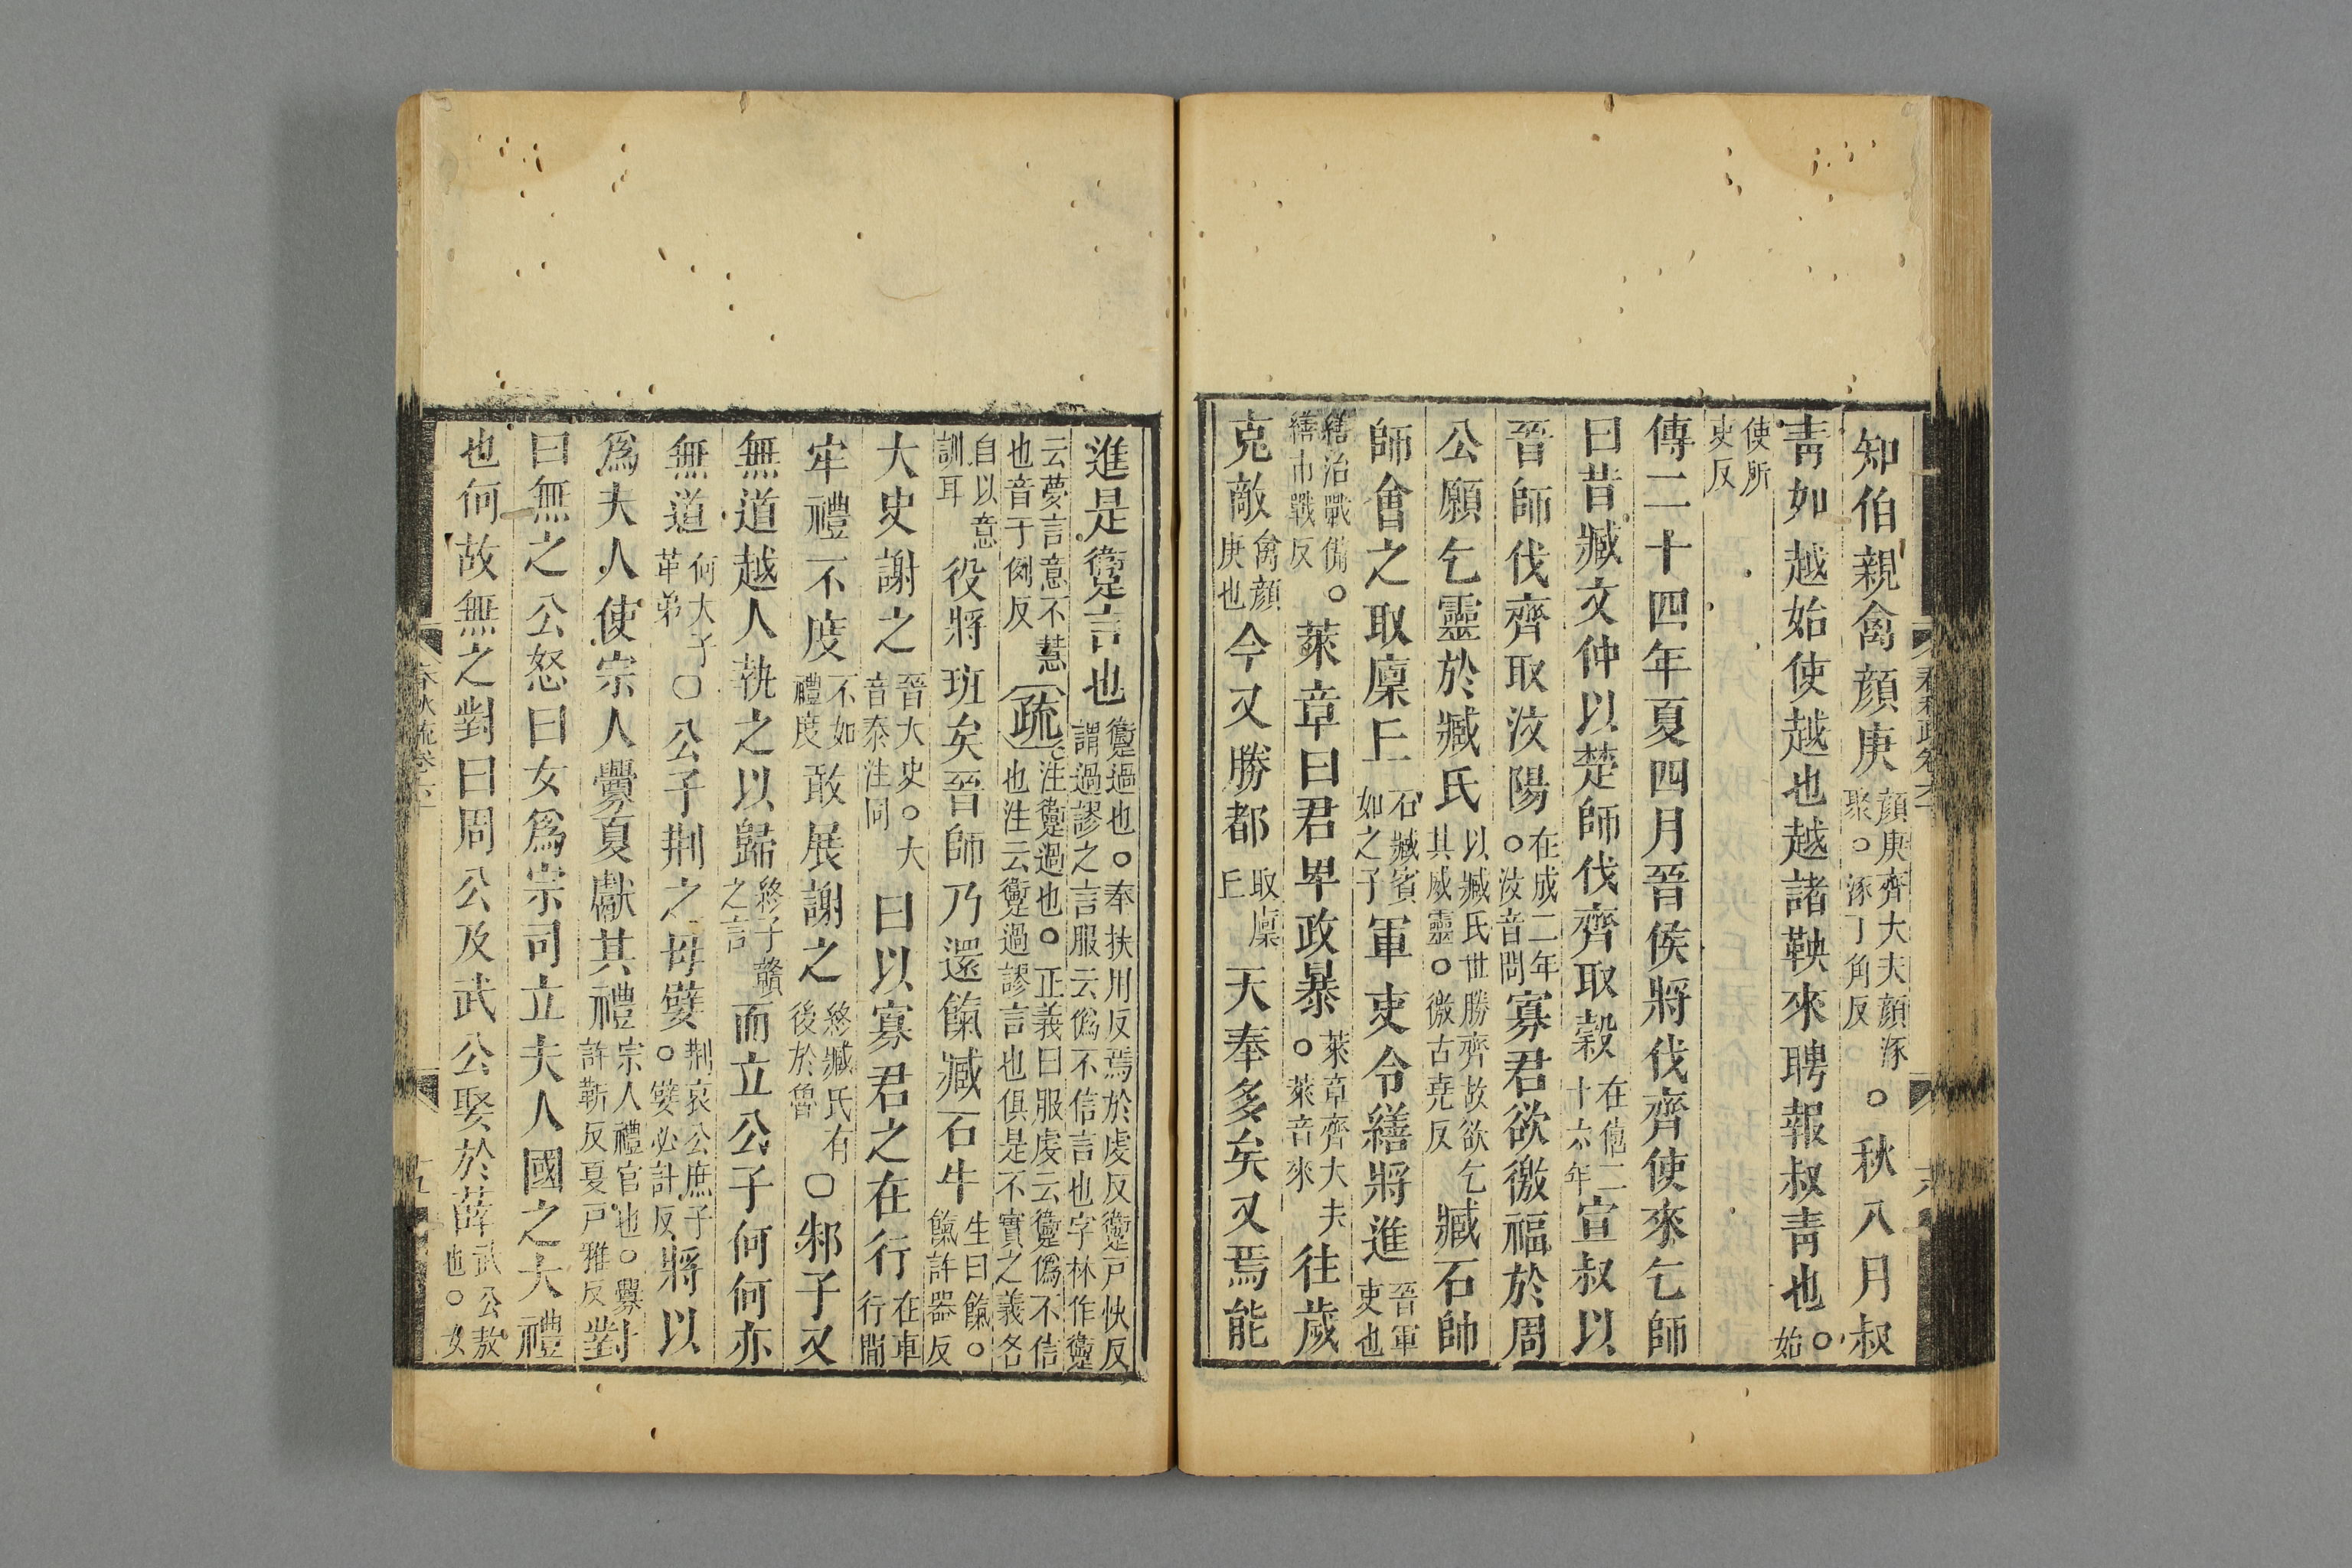 知伯親禽顏庚顏庚齊大夫顏涿聚○涿丁角反○秋八月叔
靑如越始使越也越諸鞅來聘報叔靑也○始
使所吏反
傳二十四年夏四月晉侯將伐齊使來乞師
曰昔臧文仲以楚師伐齊取穀在僖二十六年宣叔以
晉師伐齊取汶陽在成二年○汶音問寡君欲徼福於周
公願乞靈於臧氏以臧氏世勝齊故欲乞其威靈○徼古堯反臧石帥
師會之取廩丘石臧賓如之子軍吏令繕將進晉軍吏也
繕治戰備○繕市戰反萊章曰君卑政暴萊章齊大夫○萊音來往歲
克敵禽顏庚也今又勝都取廩丘天奉多矣又焉能
進是躗言也躗過也○奉扶用反焉於虔反躗戶快反謂過謬之言服云僞不信言也字林作躗
云夢言意不慧也音于例反疏注躗過也○正義曰服虔云躗僞不信也注云躗過謬言也俱是不實之義各
自以意訓耳役將班矣晉師乃還餼臧石牛生曰餼○餼許器反
大史謝之晉大史○大音泰注同曰以寡君之在行在車行閒
牢禮不度不如禮度敢展謝之終臧氏有後於魯○邾子又
無道越人執之以歸終子贛之言而立公子何何亦
無道何大子革弟○公子荆之母嬖荆哀公庶子○嬖必計反將以
爲夫人使宗人釁夏獻其禮宗人禮官也○釁許靳反夏戶雅反對
曰無之公怒曰女爲宗司立夫人國之大禮
也何故無之對曰周公及武公娶於薛武公敖也○女